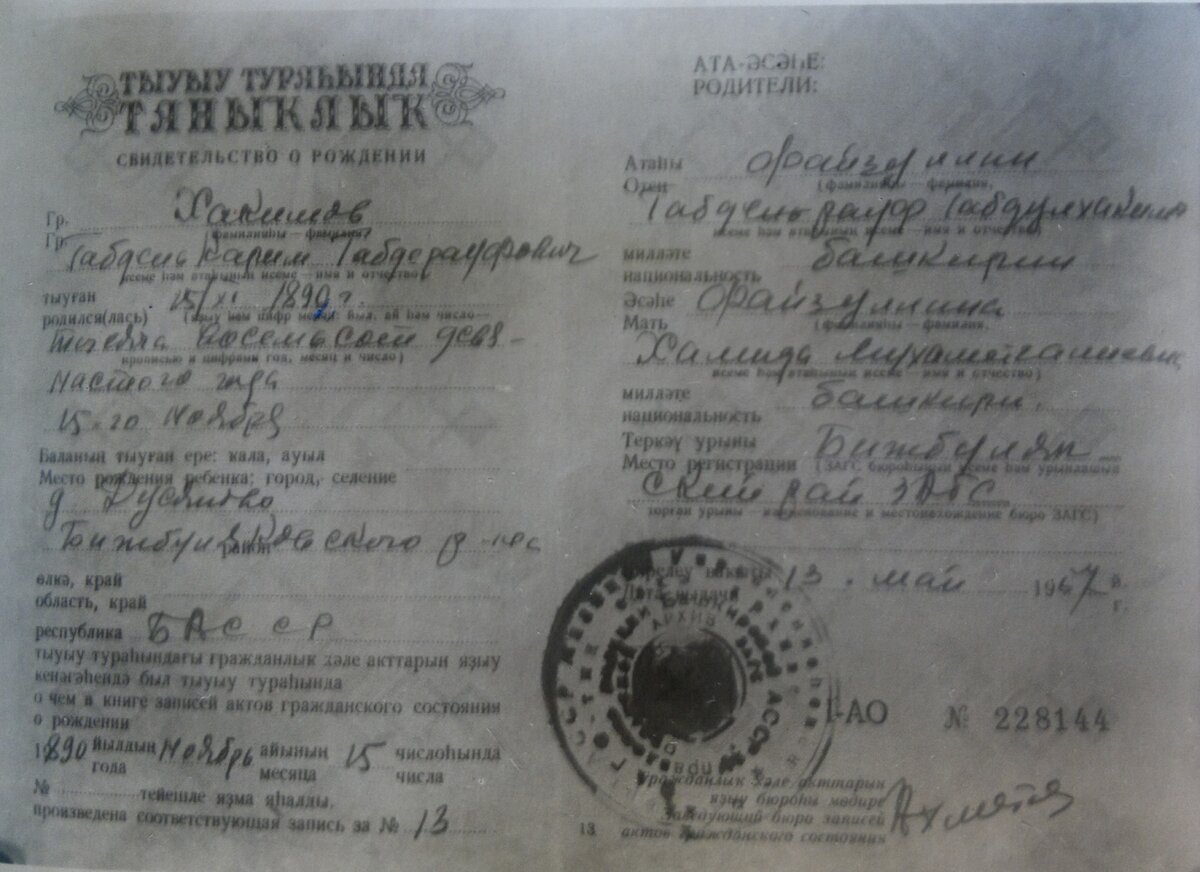 ТЫУЫУ ТУРАҺЫНДА
ТАНЫҠЛЫҠ
СВИДЕТЕЛЬСТВО О РОЖДЕНИИ
Гр. Хакимов
Гр. (фамилияһы — фамилия)
Габдель Карим Габдерауфович
исеме һәм атаһының исеме — имя и отчество)
тыуған 15/XI 1890 г.
родился(лась)
тысяча восемьсот девя-
прописью и цифрами год, месяц и число)
ностого года
15-го Ноября
Баланың тыуған ере: ҡала, ауыл
Место рождения ребенка: город, селение
д. Дусяново
Бижбуляковского р-на
район
өлкә, край
область, край
республика БАССР
тыуыу тураһындағы граждандыҡ хәле акттарын яҙыу
кенәгәһендә был тыуыу тураһында
о чем в книге записей актов гражданского состояния
о рождении
1890 йылдың Ноябрь айының 15 числоһында
года месяца числа
№ тейешле яҙма яһалды.
произведена соответствующая запись за № 13
АТА-ӘСӘҺЕ:
РОДИТЕЛИ:
Атаһы Файзуллин
Отец (фамилияһы — фамилия,
Габдельрауф Габдулхаким
исеме һәм атаһының исеме — имя и отчество)
милләте башкирин
национальность
Әсәһе Файзуллина
Мать (фамилияһы — фамилия,
Хамида
исеме һәм атаһының исеме — имя и отчество)
милләте башкири.
национальность
Теркәү урыны Бижбуляк
Место регистрации (ЗАГС бюроһының исеме һәм урынлашҡан
ский рай ЗАГС
торған урыны — наименование и местонахождение бюро ЗАГС)
13. май 1957 й.
Дата выдачи г.
АРХИВ
I-АО № 228144
Граждандыҡ хәле акттарын
яҙыу бюроһы мөдире
Заведующий бюро записей
актов гражданского состояния
13